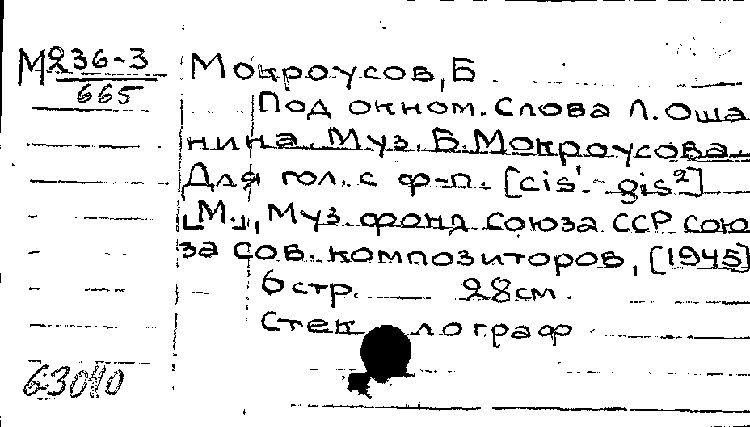 М236-3
665
Мокроусов, Б
Под окном. Слова Л. Оша
нина. Муз. Б. Мокроусова.
Для гол. с ф-п. [cis¹ - gis²]
[М.], Муз. фонд союза ССР сою
за сов. композиторов, [1945]
6 стр. 28 см.
Стек лограф